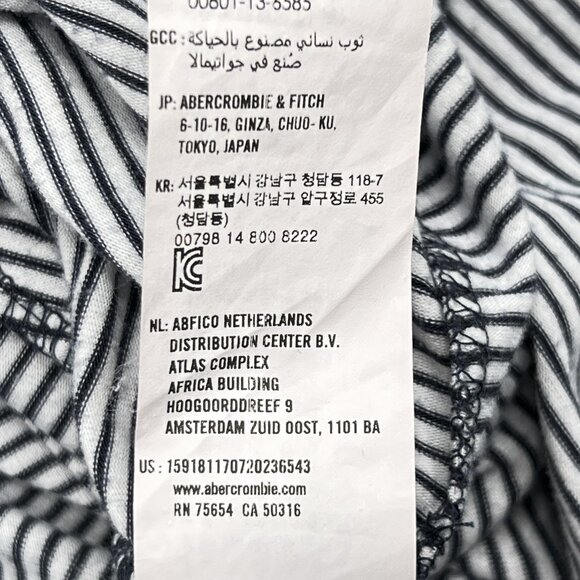 00801-13-8585
GCC : ثوب نسائي مصنوع بالحياكة
صُنع في جواتيمالا
JP: ABERCROMBIE & FITCH
6-10-16, GINZA, CHUO-KU,
TOKYO, JAPAN
KR: 서울특별시 강남구 청담동 118-7
서울특별시 강남구 압구정로 455
(청담동)
00798 14 800 8222
NL: ABFICO NETHERLANDS
DISTRIBUTION CENTER B.V.
ATLAS COMPLEX
AFRICA BUILDING
HOOGOORDDREEF 9
AMSTERDAM ZUID OOST, 1101 BA
US : 159181170720236543
www.abercrombie.com
RN 75654 CA 50316